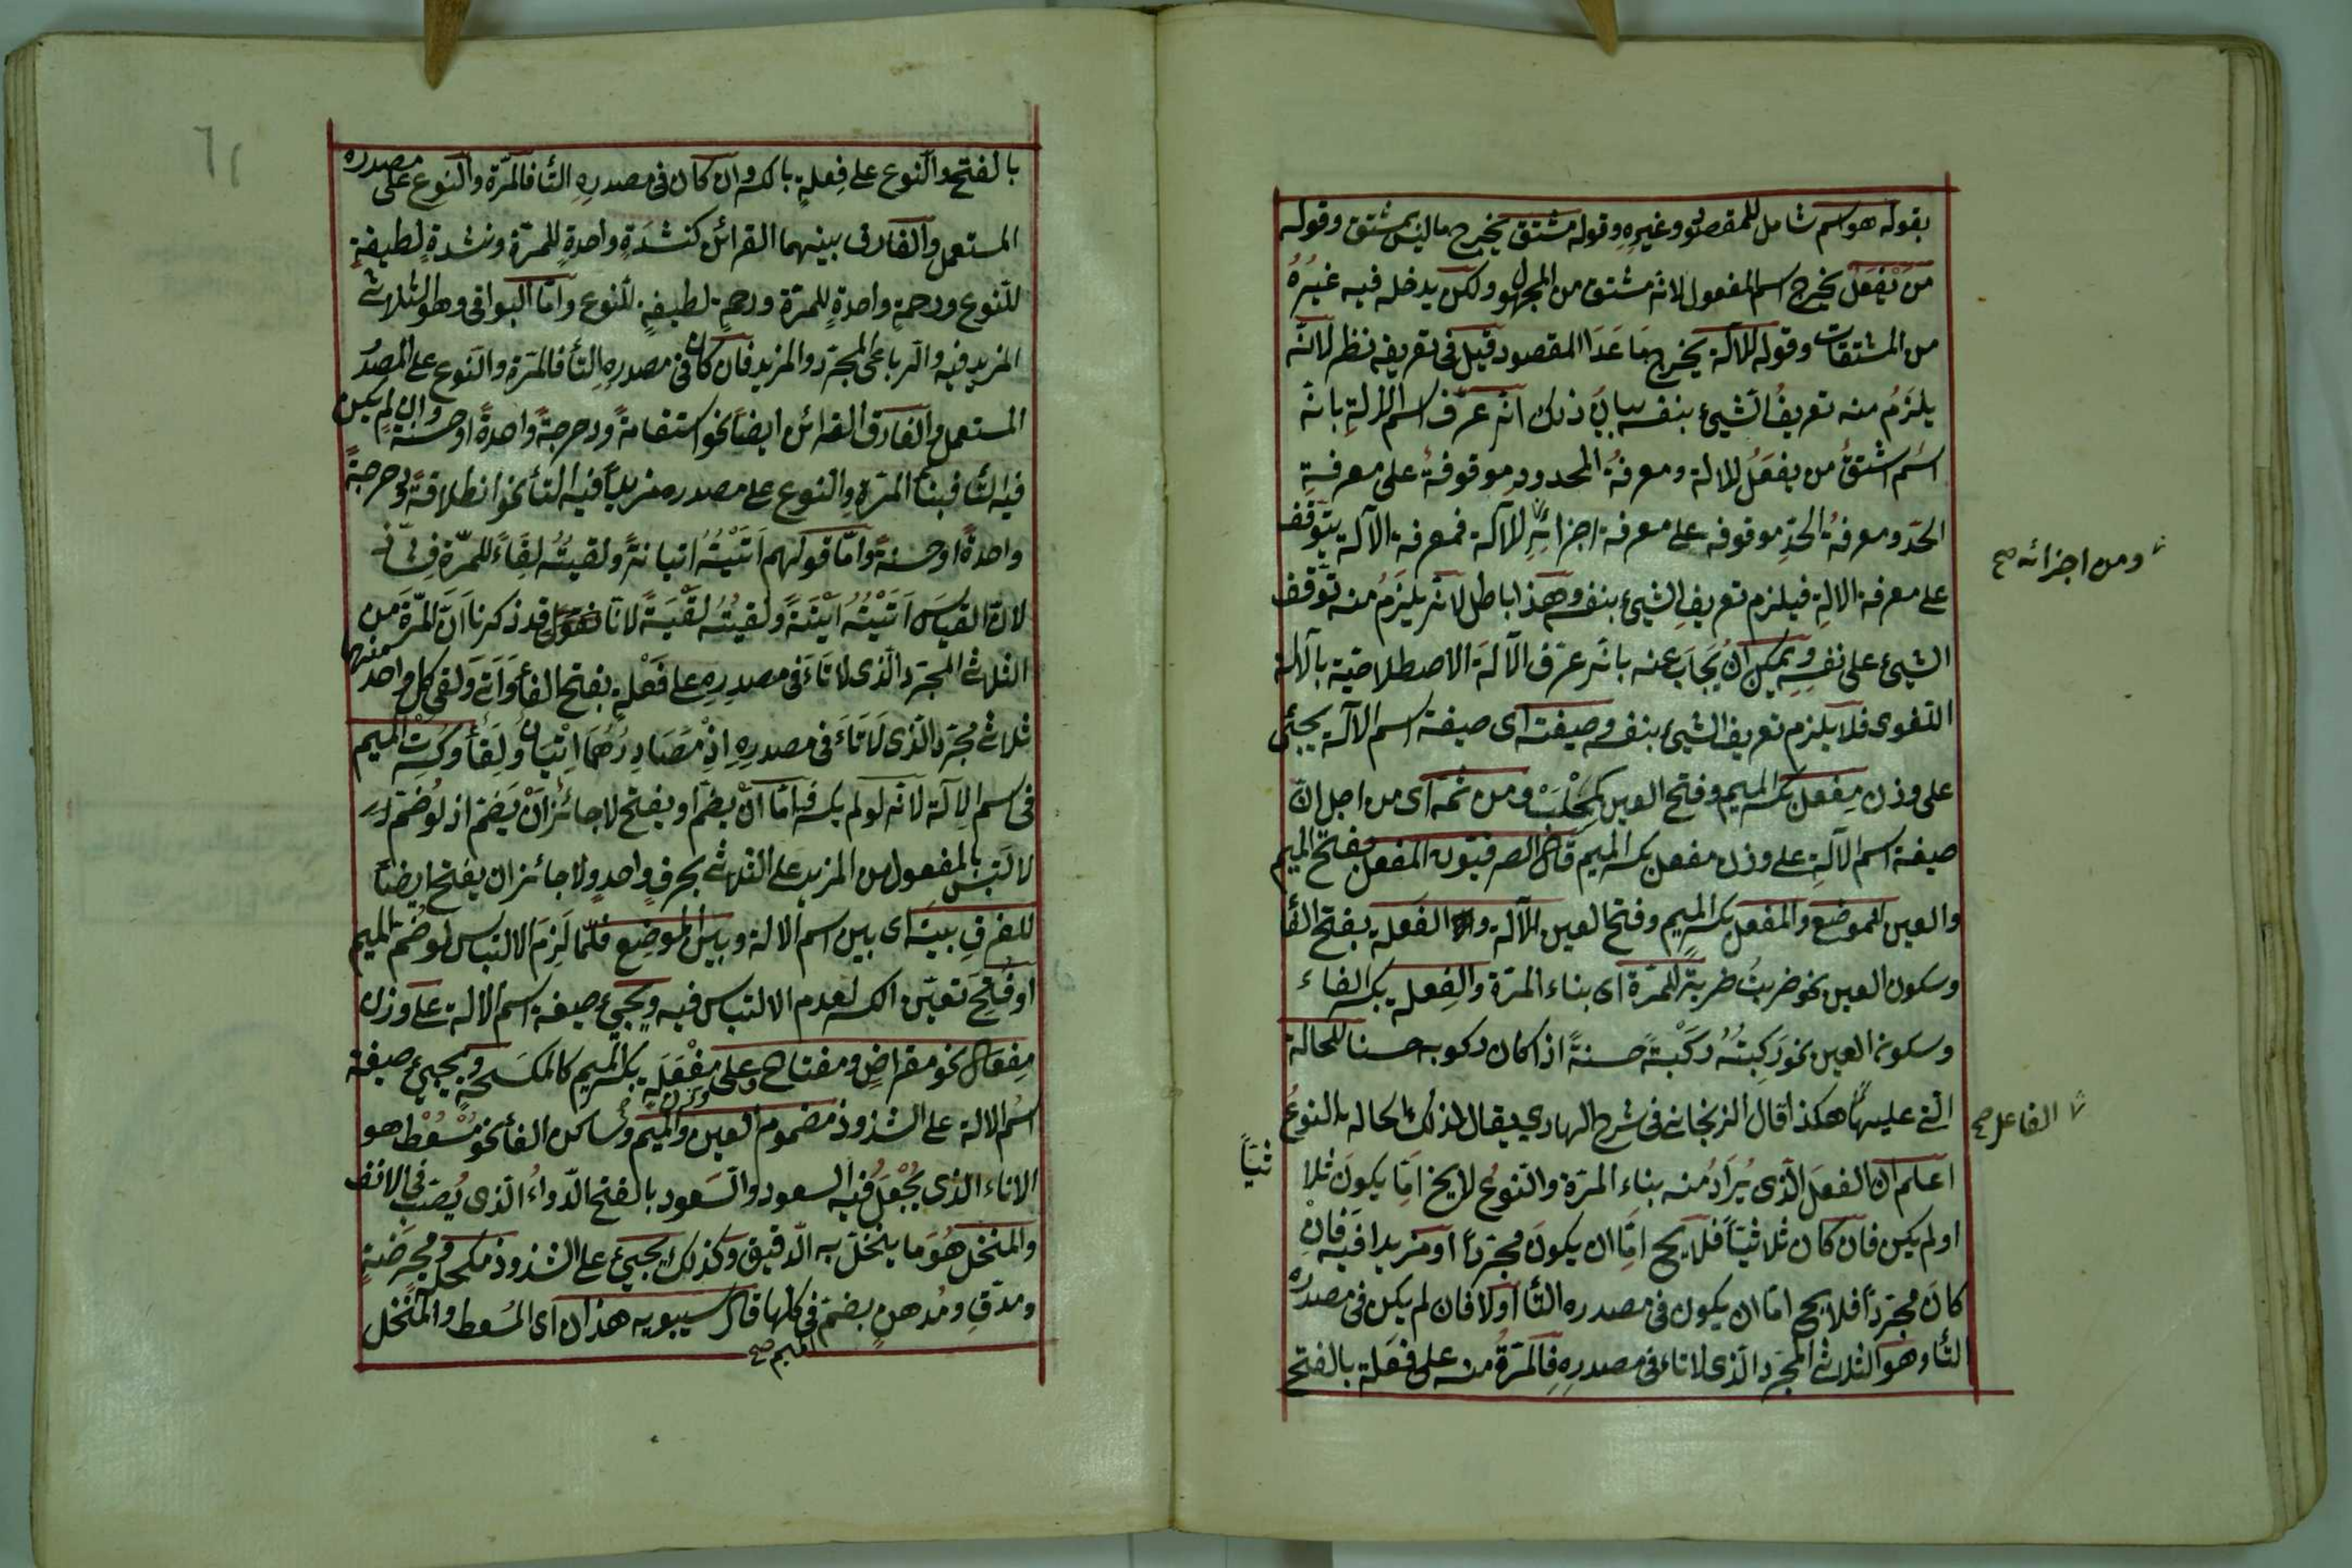 بقوله هو اسم شامل للمقصود وغيره وقوله مشتق يخرج ما ليس بمشتق وقوله
من يَفْعَلُ يخرج اسم المفعول لانه مشتق من المجهول ولكن يدخله فيه غيرُهُ
من المشتقات وقوله للآلة يخرج مَا عَدَا المقصود قيل فى تعريفه نظر لانّه
يلزمُ منه تعريفُ الشيئ بنفسه بيانُ ذلك انّه عرّف اسم الالةِ بانّه
اسُم اشتقُ من يفعَلُ للالة ومعرفةُ المحدودِ موقوفةُ على معرفةِ
الحدّ ومعرفةُ الحدِّ موقوفه على معرفة اجزائهِ للآلة فمعرفة الآلة يتوقف
ومن اجزائه صح
على معرفة الالةِ فيلزم تعريفِ الشيئ بنفسه وهذا باطل لانّه يلزمُ منه توقف
الشيئ على نفسِهِ ويمكن ان يُجَابَ عنه بانّه عرّف الآلةَ الاصطلاحيّة بالآلة
اللغوى فلا يلزم تعريف الشيئ بنفسه وصيغته اى صيغة اسم الآلة يجيئ
على وزن مِفعل بكسر الميم وفتح العين كمِحْلَبْ ومن ثمّه اى من اجل انّ
صيغة اسم الآلةِ على وزن مفعل بكسر الميم قال الصرفيّون المفعل بفتح الميم
والعين للموضع والمفعل بكسر الميم وفتح العين للآلة والفَعلة بفتح الفأ
وسكون العين نحو ضربتُ ضربةً للمرّة اى بناء المرّة والفِعلة بكسر الفاء
وسكون العين نحو رَكِبتُهُ رِكْبَةً حسنةً اذا كان ركوبه حسنا للحالة
التى عليها هكذا قال الزنجانى فى شرح الهادى يقال لذلك الحالة النوعُ
الفاعل صح
اعلم ان الفعل الّذى يُرَادُ منه بناء المرّة والنّوعُ لا يخ امّا يكونَ ثلا
ثيّاً
او لم يكن فان كان ثلاثيّاً فلا يخ امّا ان يكونَ مجرّداً او مزيدا فيه فان
كانَ مجرّداً فلا يخ امّا ان يكون فى مصدره التّأ اولا فان لم يكن فى مصدره
التّأ وهو الثلاثى المجرّد الّذى لا تاء فى مصدرِهِ فالمرّةُ منه على فَعلة بالفتح
٦١
بالفتح والنّوع على فِعلةٍ بالكسر وان كان فى مصدرهِ التّأ فالمرّة والنوع على مصدره
المستعمل والفارق بينهما القرائن كنشدَةٍ واحدةٍ للمرّة ونشدةٍ لطيفةٍ
للنّوع ورحمةٍ واحدةٍ للمرّة ورحمةٍ لطيفةٍ للنّوع وامّا البواقى وهو الثلاثى
المزيد فيه والرباعى المجرّد والمزيد فان كان فى مصدره التأ فالمرّة والنّوع على المصدر
المستعمل والفارق القرائن ايضًا نحو استقامةً ودحرجةً واحدةً او حسنةً وان لم يكن
فيه التّأ فبنأ المرّة والنوع على مصدره مزيداً فيه التّأ نحو انطلاقةً ودحرجةً
واحدةً او حسنةً وامّا قولهم اَتَيْتُهُ اتيانةً ولقيتُه لِقَاءَةً للمرّة
لانّ القياسَ اَتَيْتُه اَتْيَةً ولقيتُه لَقْيَةً لانّا قد ذكرنا اَنّ المرّةَ من
الثلاثى المجرّد الّذى لا تَاءَ فى مصدرِهِ على فَعْلةٍ بفتح الفأ وَاَتَى وَلقى كل واحد منهما
ثلاثى مجرّد الّذى لَا تَاءَ فى مصدرِهِ اِذْ مَصَادِرُهُمَا اِتْيَانٌ ولِقَأ وكُسِرت الميم
فى اسم الآلة لانّه لو لم يكسر فامّا اَنْ يضمّ او يفتح لا جائز اَنْ يَضمّ اذ لو ضُمّ
لالتبس بالمفعول من المزيد على الثلاثى بحرفٍ واحدٍ ولا جائز ان يفتح ايضًا
للفرقِ بينه اى بين اسم الالة وبين الموضِع فلمّا لَزِمَ الالتباس لو ضُمّ الميم
او فُتِحَ تعيّن الكسر لعدم الالتباس فيه ويجيئ صيغة اسم الالة على وزن
مِفعال نحو مقراضٍ ومفتاح وعلى وزن مِفْعَلَة بكسر الميم كالمكسَحةٍ ويجيئ صيغة
اسُم الالة على الشذوذ مضموم العين والميم وساكن الفأ نحو مُسْعُط هو
الاناء الذى يُجْعَلُ فيه السعود والسَعود بالفتح الدّواءُ الّذى يُصَبّ فى الانف
والمنخل هُوَ ما ينخلّ به الدقيق وكذلك يجيئ على الشذوذ مكحلةٍ ومحرضةٍ
ومدقٍ ومُدهنٍ بضمّ فى كلها قال سيبويه هذان اى المُسعط والمُنخل
الميم صح